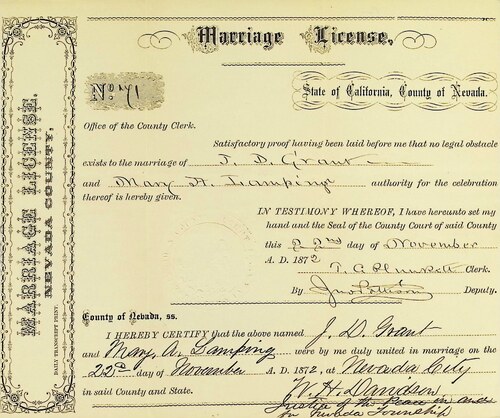 Marriage License,
MARRIAGE LICENSE.
NEVADA COUNTY,
DAILY TRANSCRIPT PRINT.
No. 71
State of California, County of Nevada.
Office of the County Clerk.
Satisfactory proof having been laid before me that no legal obstacle
exists to the marriage of J. D. Grant
and Mary A. Lamping authority for the celebration
thereof is hereby given.
IN TESTIMONY WHEREOF, I have hereunto set my
hand and the Seal of the County Court of said County
this 22nd day of November
A. D. 1872
T. C. Plunkett Clerk.
By Deputy.
County of Nevada, ss.
I HEREBY CERTIFY that the above named J. D. Grant
and Mary A. Lamping were by me duly united in marriage on the
22d day of November A. D. 1872, at Nevada City
in said County and State. W. H. Davidson
Justice of the Peace in and
for Nevada Township